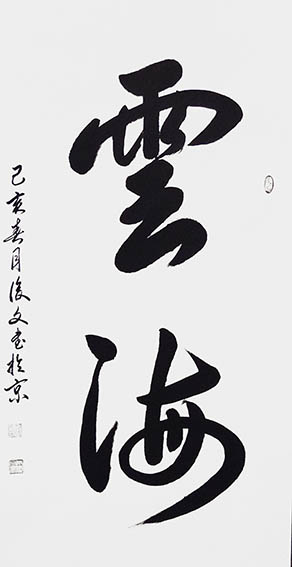 雲海
己亥春月俊文书於京